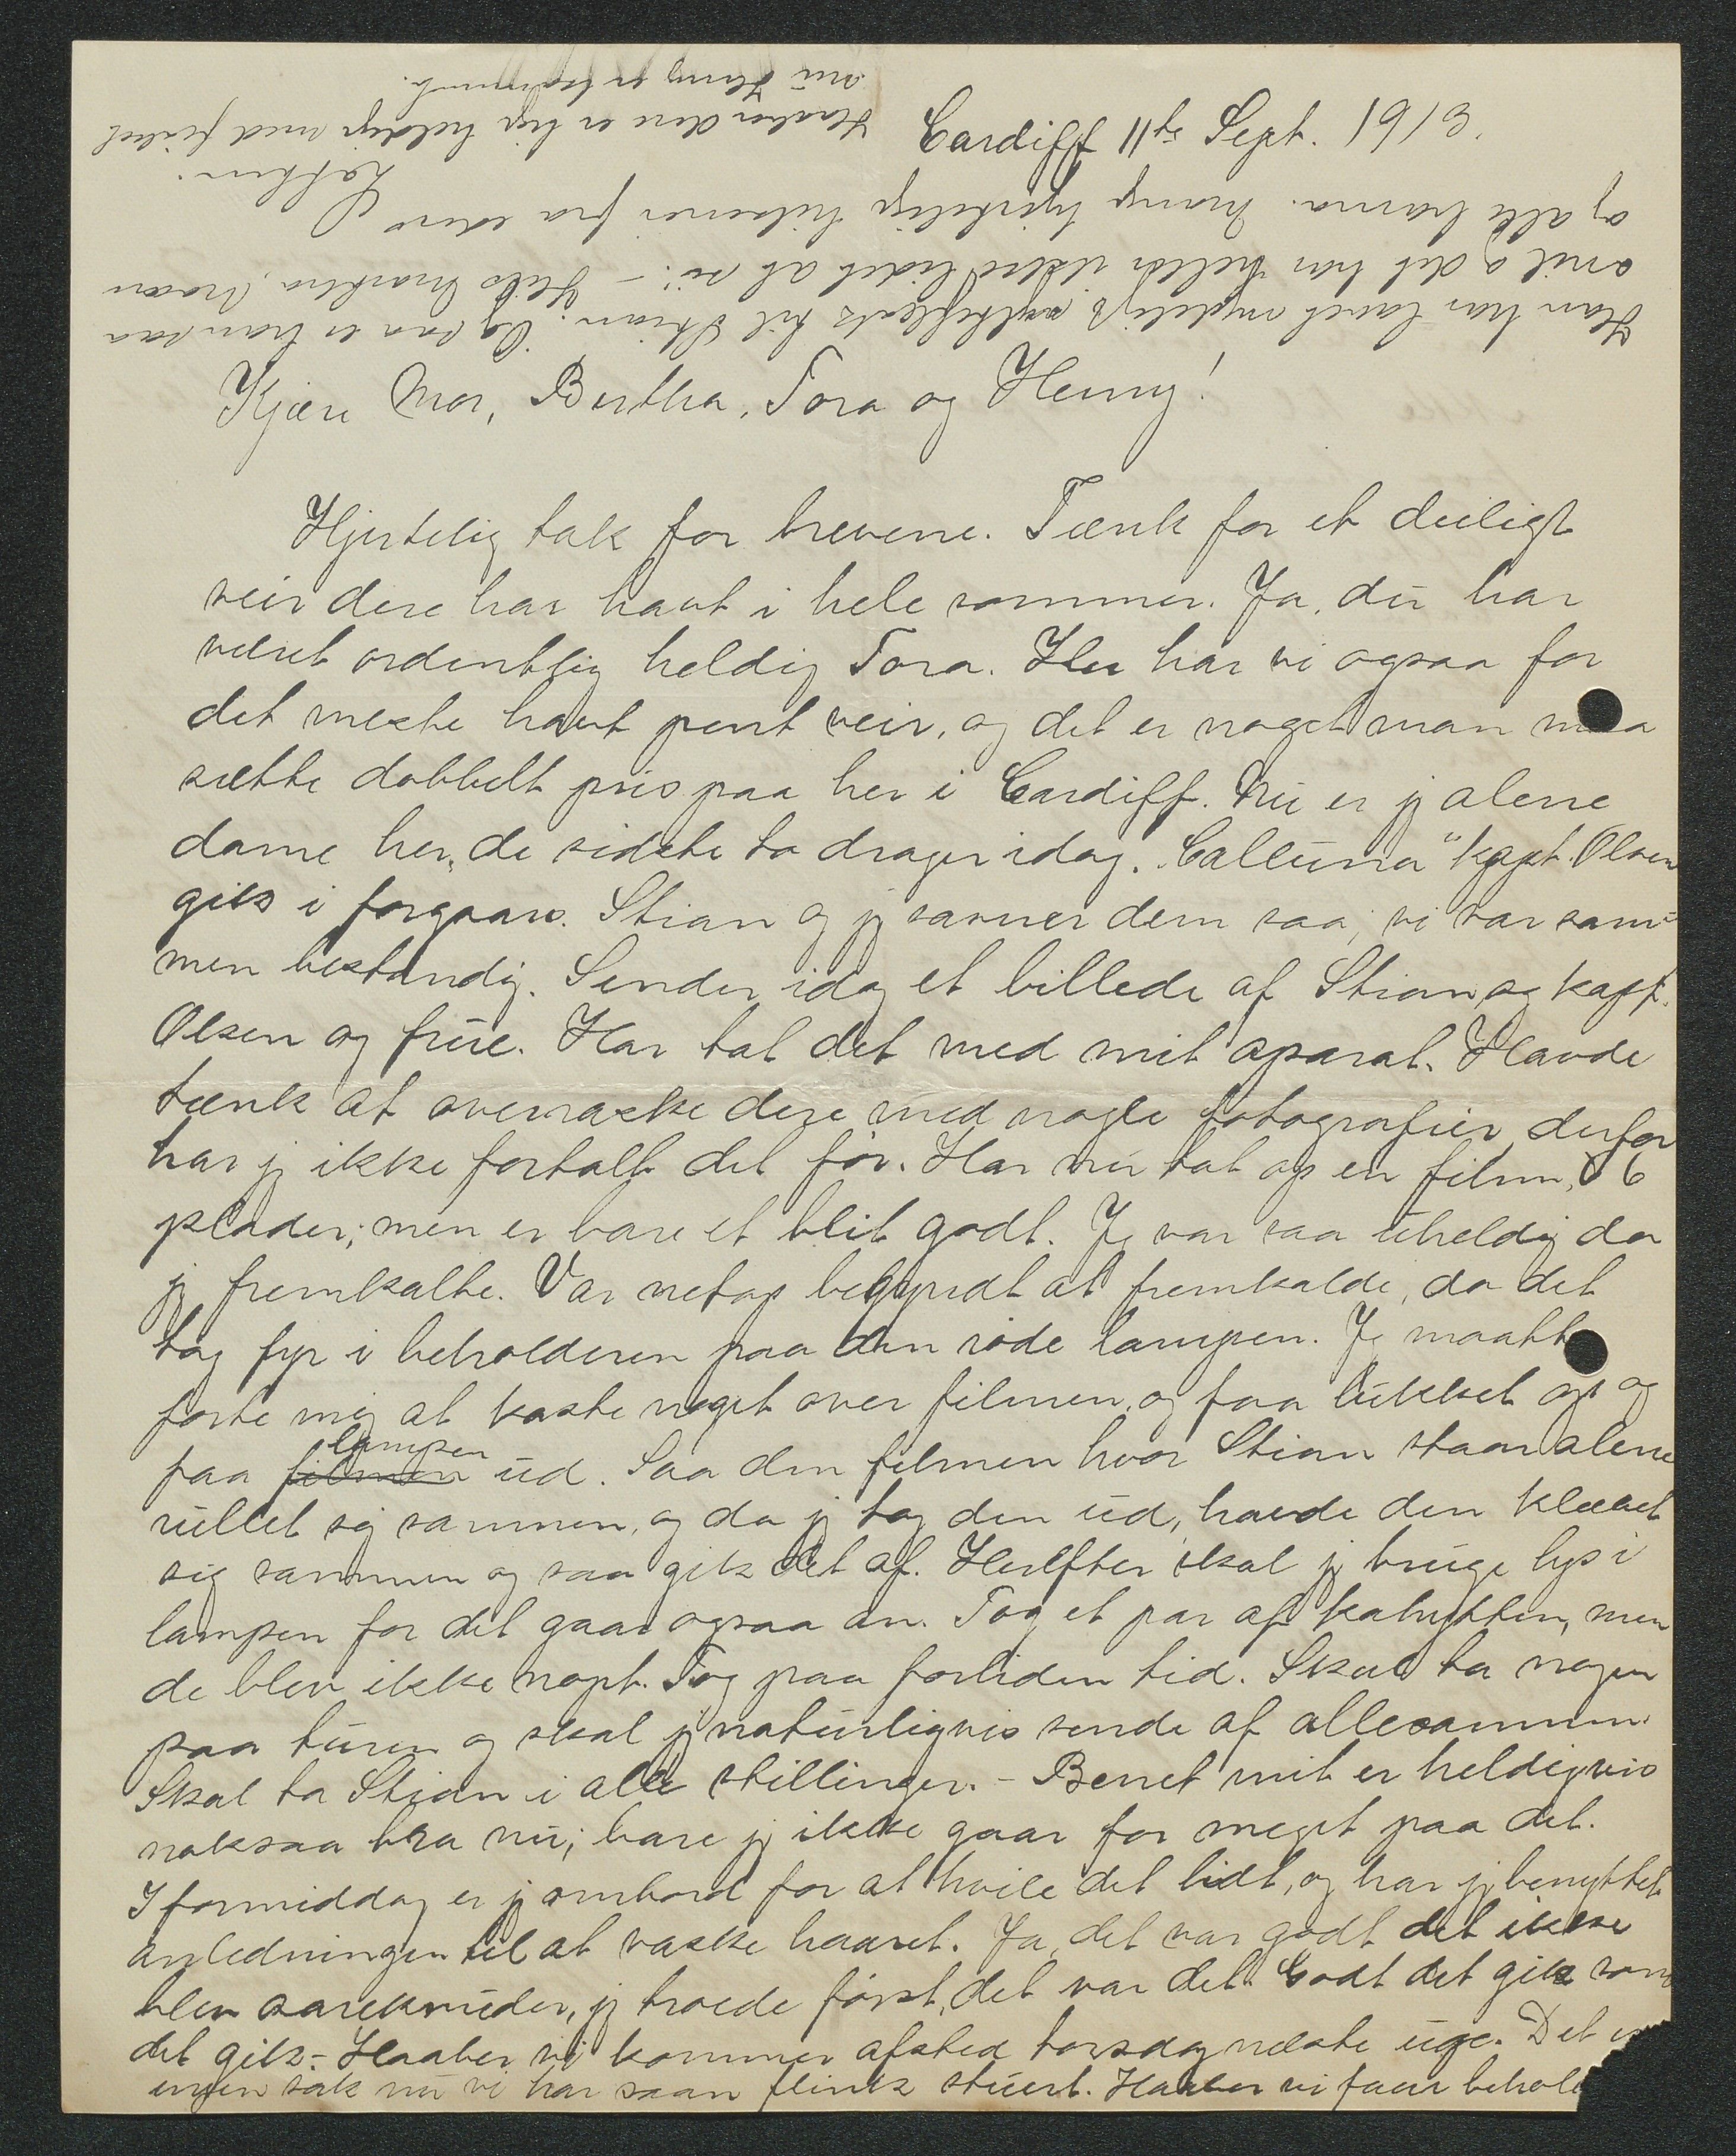 Cardiff 11te Sept. 1913.
Kjære Mor, Bertha, Tora og Henny!
Hjertelig tak for brevene. Tænk for et deiligt
veir dere har havt i hele sommer. Ja, du har
været ordentlig heldig Tora. Her har vi ogsaa for
det meste havt pent veir, og det er noget man maa
sætte dobbelt pris paa her i Cardiff. Nu er jg alene
dame her, de sidste to drager idag. "Calluna" kapt. Olsen
gik i forgaars. Stian og jg savner dem saa, vi var sam-
men bestandig. Sender idag et billede af Stian og kapt.
Olsen og frue. Har tat det med mit aparat. Havde
tænk at overraske dere med nogle fotografier derfor
har jg ikke fortalt det før. Har nu tat op en film, 6
plader; men er bare et blit godt. Jg var saa uheldig da
jg fremkalte. Var netop begyndt at fremkalde, da det
tog fyr i beholderen paa den røde lampen. Jg maatte
forte mig at kaste noget over filmen, og faa lukket op og
faa filmen lampen ud. Saa den filmen hvor Stian staar alene
rullet sig sammen, og da jg tog den ud, havde den klæbet
sig sammen og saa gik det af. Herefter skal jg bruge lys i
lampen for det gaar ogsaa an. Tog et par af kahytten, men
de blev ikke nopt. Tog paa forliden tid. Skal ta nogen
paa turen og skal jg naturligvis sende af allesammen.
Skal ta Stian i alle stillinger. – Benet mit er heldigvis
noksaa bra nu; bare jg ikke gaar for meget paa det.
I formiddag er jg ombord for at hvile det lidt, og har jg benyttet
anledningen til at vaske haaret. Ja, det var godt det ikke
blev aareknuder, jg troede først, det var det. Godt det gik som
det gik. – Haaber vi kommer afsted torsdag næste uge. Det er
ingen sak nu vi har saan flink stuert. Haaber vi faar behol
Han har lavet nydelig til Stian. Og saa er han saa
snil og det har heller idetid at si. – Hils Martha, Maren
og alle hanna. Mange hjertelige hilsener fra eders
Lolkem.
Haaber dere er lige heldige med
nu Henny er